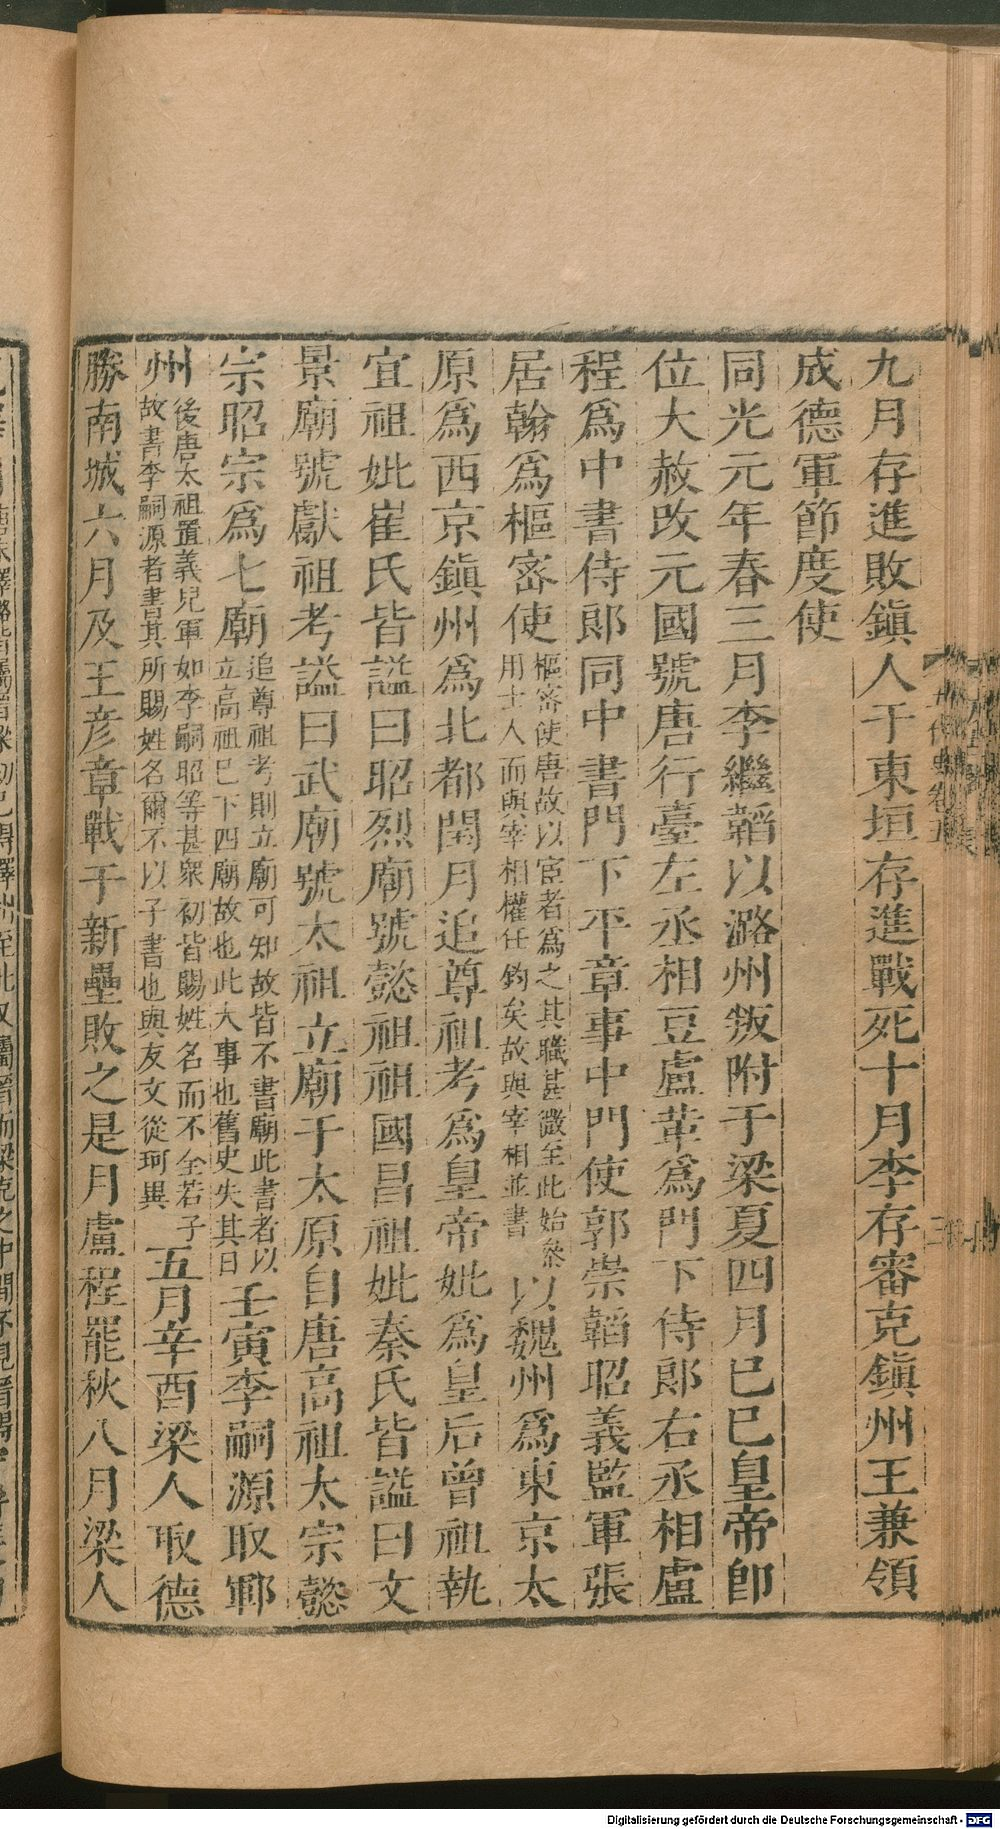 九月存進敗鎮人于東垣存進戰死十月李存審克鎮州王兼領
成德軍節度使
同光元年春三月李繼韜以潞州叛附于梁夏四月己巳皇帝卽
位大赦改元國號唐行臺左丞相豆盧革爲門下侍郎右丞相盧
程爲中書侍郎同中書門下平章事中門使郭崇韜昭義監軍張
居翰爲樞密使樞密使唐故以宦者爲之其職甚微至此始參用士人而與宰相權任鈞矣故與宰相並書以魏州爲東京太
原爲西京鎮州爲北都閏月追尊祖考爲皇帝妣爲皇后曾祖執
宜祖妣崔氏皆謚曰昭烈廟號懿祖祖國昌祖妣秦氏皆謚曰文
景廟號獻祖考謚曰武廟號太祖立廟于太原自唐高祖太宗懿
宗昭宗爲七廟追尊祖考則立廟可知故皆不書廟此書者以立高祖已下四廟故也此大事也舊史失其日壬寅李嗣源取鄆
州後唐太祖置義兒軍如李嗣昭等甚衆初皆賜姓名而不全若子故書李嗣源者書其所賜姓名爾不以子書也與友文從珂異五月辛酉梁人取德
勝南城六月及王彥章戰于新壘敗之是月盧程罷秋八月梁人
五代史卷五
Digitalisierung gefördert durch die Deutsche Forschungsgemeinschaft - DFG